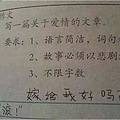 写一篇关于爱情的文章。
要求：1、语言简洁，词句
2、故事必须以悲剧
3、不限字数
嫁给我好吗
滚！"